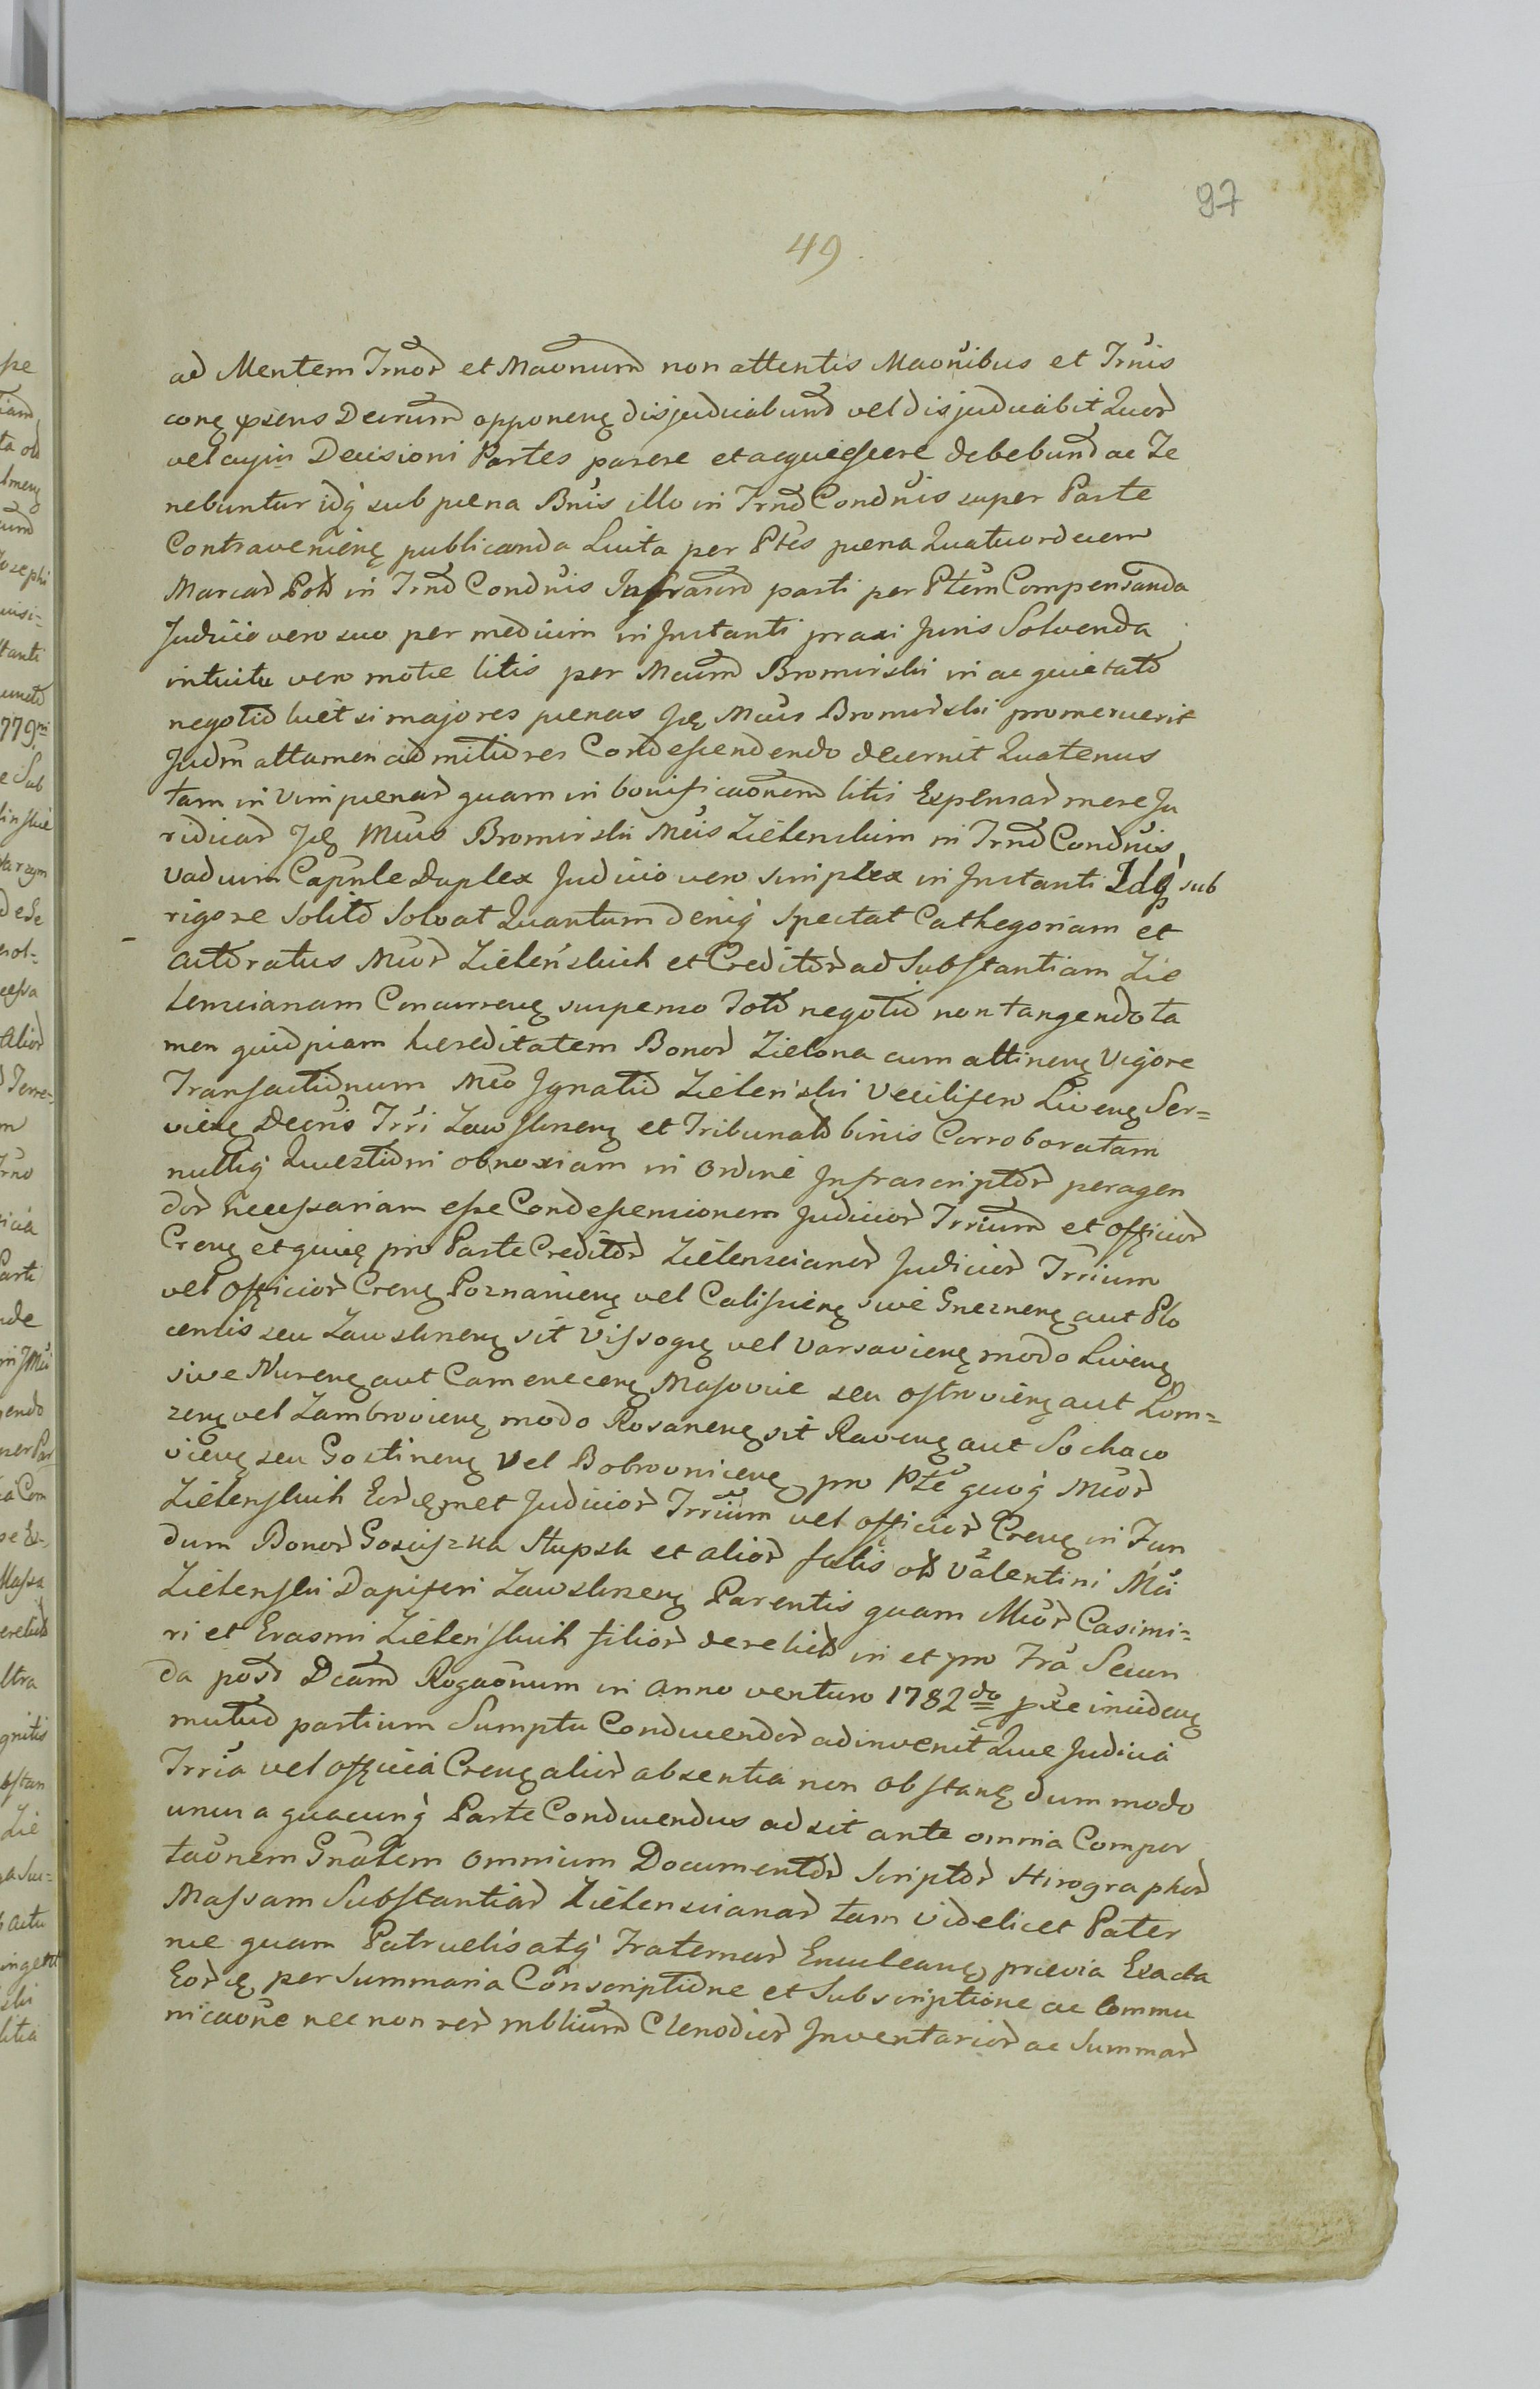 97
49
ad Mentem Trnor et Maonum non attentis Maonibus et Trnis
conę pziens Decrum opponenę disjudicabund vel disjudicabit Quor
vel cujus Decisioni Partes parere et acquiescere debebund ac Te
nebuntur idq́ sub pena Bnis illo in Trno Condnis super Parte
Contravenienę publicanda Luita per Ptes pena Quatuordecem
Marcar Pol in Trno Condnis Infrascr parti per Ptem Compensanda
Judicio vero suo per medium in Instanti praxi Juris Solvenda
intuitu vero motæ litis per Mcum Bromirski in acquietato
negotio licet si majores penas Ję Mcus Bromirski promeruerit
Judm attamen ad mitiores Condescendendo decernit Quatenus
tam in vim penar quam in bonificaonem litis Expensar mere Ju
ridicar Ję Mcus Bromirski Mcis Zielenskim in Trno Condnis
vadium Capnle duplex Judicio vero simplex in Instanti Idq́ sub
rigore solito Solvat Quantum deniq́ spectat Cathegoriam et
actoratus Mcor Zieleńskich et Creditor ad Substantiam Zie
lenscianam Concurrenę suspenso Toto negotio non tangendo ta
men quidpiam hæreditatem Bonor Zielona cum attinenę Vigore
Transactionum Mco Ignatio Zieleński Vexilifero Livenę Ser=
vienę Decris Trri Zawskrzenę et Tribunalo binis Corroboratam
nulliq́ Quæstioni obnoxiam in ordine Infrascriptor peragen
dor necessariam esse Condescensionem Judicior Trrium et officior
Crenę et quidę pro Parte Creditor Zielenscianor Judicior Trrium
vel Officior Crenę Poznanienę vel Calisienę sive Gneznenę aut Plo
censis seu Zawskrzenę sit Vissogrę vel Varsavienę modo Livenę
sive Nurenę aut Camenecenę Masoviæ seu ostrovienę aut Lom=
zenę vel Zambrovienę modo Rosanenę sit Ravenę aut Sochaco
vienę seu Gostinenę Vel Bobrovnicenę pro Pte quoq́ Mcor
Zielenskich Eordęmet Judicior Trrium vel officior Crenę in Fun
dum Bonor Gosciszka Słupsk et alior fatis olo Valentini Mci
Zielenski Dapiferi Zawskrzenę Parentis quam Mcor Casimi=
ri et Erasmi Zieleńskich filior derelict in et pro Fra Secun
da post Dcam Rogaonum in Anno venturo 1782do pxe incidenę
mutuo partium Sumptu Conducendor adinvenit Quæ Judicia
Trria vel officia Crenę alior absentia non obstanę dummodo
unus a quacunq́ Parte Conducendus adsit ante omnia Compor
taonem Gnalem omnium Documentor Scriptor Hirographor
Massam Substantiar Zielenscianar tam videlicet Pater
næ quam Patruelis atq́ Fraternar Enucleanę prævia Exacta
Eordę per Summaria Conscriptione et Subscriptione ac Commu
nicaone nec non rer mblium Clenodior Inventarior ac Summar